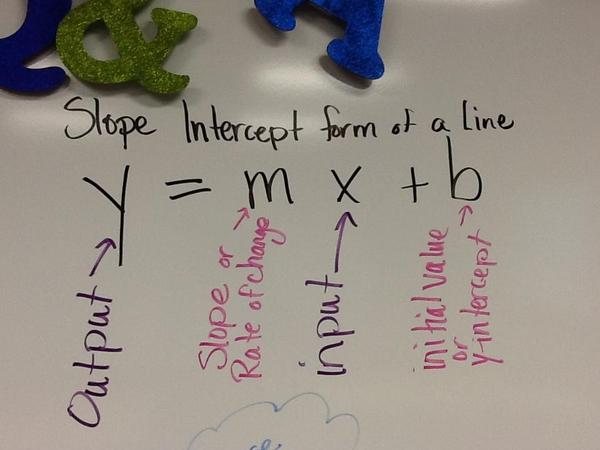 &
Slope Intercept form of a line
y = m x + b
Output →
Slope or
Rate of change →
input →
initial value
or
y-intercept →